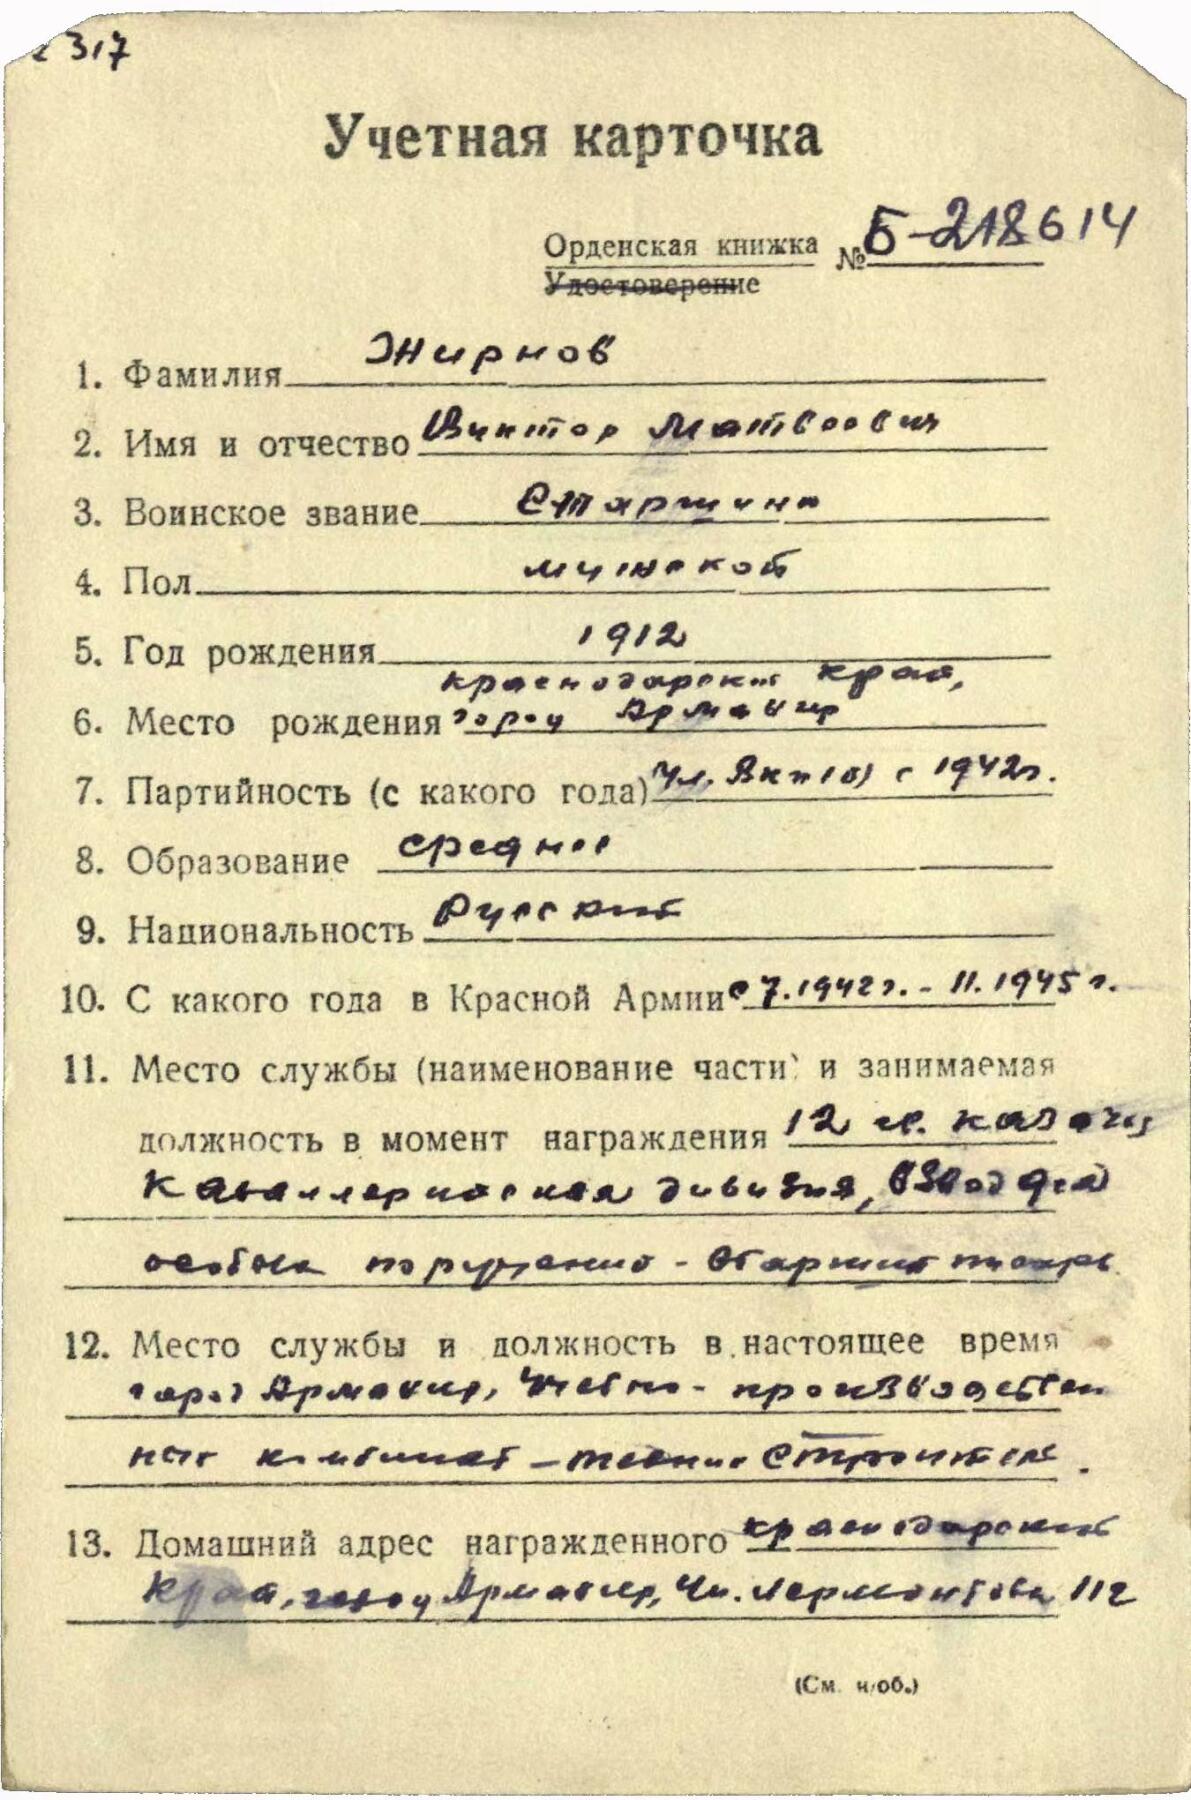 317
Учетная карточка
Орденская книжка № Б-218614
Удостоверение
1. Фамилия Жирнов
2. Имя и отчество Виктор Матвеевич
3. Воинское звание Старшина
4. Пол мужской
5. Год рождения 1912
Краснодарский край,
6. Место рождения город Армавир
7. Партийность (с какого года) Чл. ВКП(б) с 1942г.
8. Образование среднее
9. Национальность Русский
10. С какого года в Красной Армии с 7.1942г. - 11.1945г.
11. Место службы (наименование части) и занимаемая
должность в момент награждения 12 гв. казачья
Кавалерийская дивизия, взвод для
особых поручений - Старший писарь
12. Место службы и должность в настоящее время
город Армавир, Учебно-производствен
ный комбинат - техник Строитель.
13. Домашний адрес награжденного Краснодарский
Край, город Армавир, Ул. Лермонтова 112
(См. н/об.)